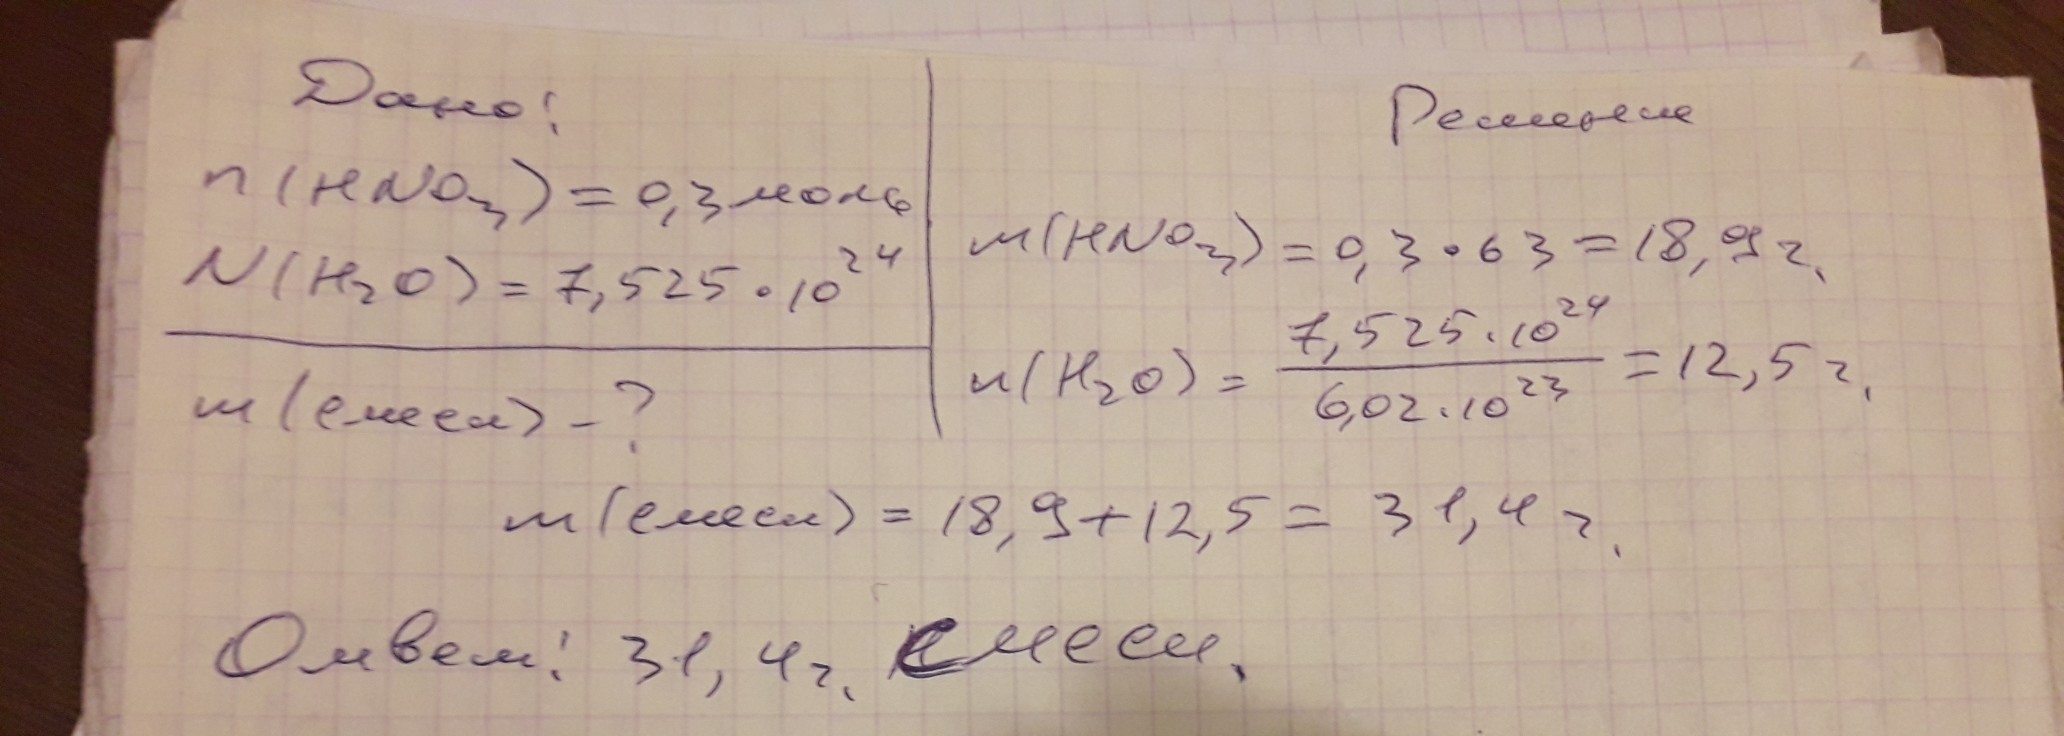 Дано:
n(HNO₃) = 0,3 моль
N(H₂O) = 7,525 · 10²⁴
m(смеси) - ?
Решение
m(HNO₃) = 0,3 · 63 = 18,9 г.
n(H₂O) = 7,525 · 10²⁴ / 6,02 · 10²³ = 12,5 г.
m(смеси) = 18,9 + 12,5 = 31,4 г.
Ответ: 31,4 г. смеси.